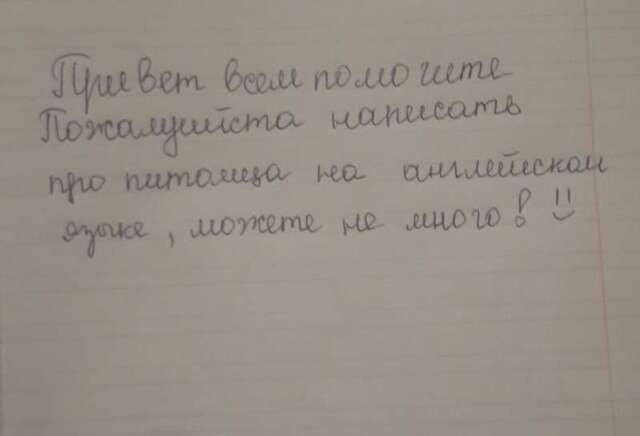 Привет всем помогите
Пожалуйста написать
про питомца на английском
языке, можете не много!